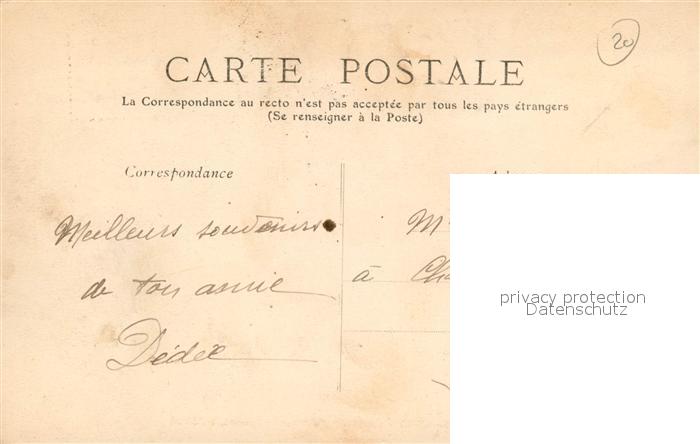 20
CARTE POSTALE
La Correspondance au recto n'est pas acceptée par tous les pays étrangers
(Se renseigner à la Poste)
Correspondance
Meilleurs souvenirs
de ton amie
Dédée
à
privacy protection
Datenschutz